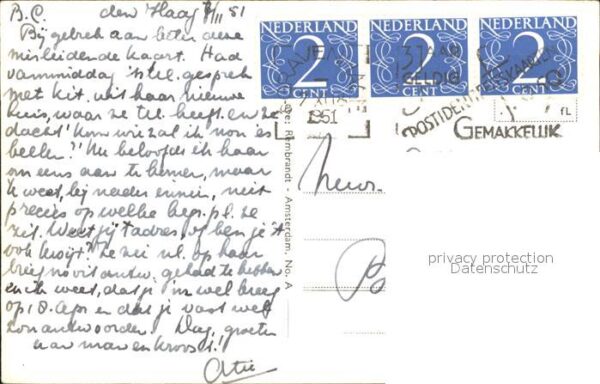 B.C. den Haag 7/III 51
Bij gebrek aan beter deze
misleidende kaart. Had
vanmiddag 'n tel. gesprek
met Kit. uit haar nieuwe
huis, waar ze tel. heeft. en ze
dacht: Kom wie zal ik non es
bellen? Nu beloofde ik haar
om eens aan te komen, maar
ik weet, bij nader inzien, niet
precies op welke hsp. pl. ze
zit. Weet jij 't adres, of ben je 't
ook kwijt? Ze zei nl. op haar
brief nooit antw. gehad te hebben
en ik weet, dat je in wel kreeg
op 18. Apr en dat je vast wel
zou antwoorden. Dag, groeten
aan man en kroost!
Atie
NEDERLAND NEDERLAND NEDERLAND
2 2 2
CENT CENT CENT
1951
3 JAAR
GELDIG
POSTIDENTITEITSKAARTEN
GEMAKKELIJK
FL
Rembrandt - Amsterdam. No. A
Mevr.
B
privacy protection
Datenschutz